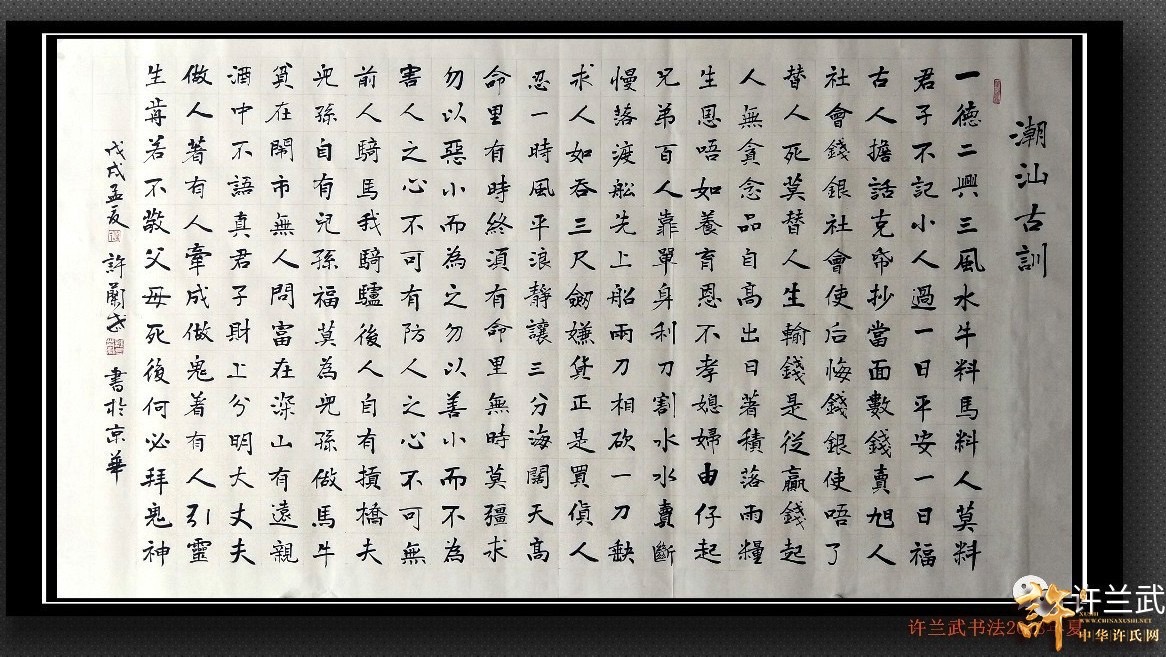 潮汕古訓
一德二興三風水牛料馬料人莫料
君子不記小人過一日平安一日福
古人擔話克帋抄當面數錢賣旭人
社會錢銀社會使后悔錢銀使唔了
替人死莫替人生輸錢是從贏錢起
人無貪念品自高出日著積落雨糧
生恩唔如養育恩不孝媳婦由仔起
兄弟百人靠單身利刀割水水賣斷
慢落渡舩先上船兩刀相砍一刀缺
求人如吞三尺劒嫌貨正是買貨人
忍一時風平浪靜讓三分海闊天高
命里有時終須有命里無時莫彊求
勿以惡小而為之勿以善小而不為
害人之心不可有防人之心不可無
前人騎馬我騎驢後人自有摃橋夫
兒孫自有兒孫福莫為兒孫做馬牛
貧在鬧市無人問富在深山有遠親
酒中不語真君子財上分明大丈夫
做人著有人牽成做鬼着有人引靈
生前若不敬父母死後何必拜鬼神
戊戌孟夏 許蘭武 書於京華
许兰武书法20 夏
许兰武
許
XUSHI
WWW.CHINAXUSHI.NET
中华许氏网